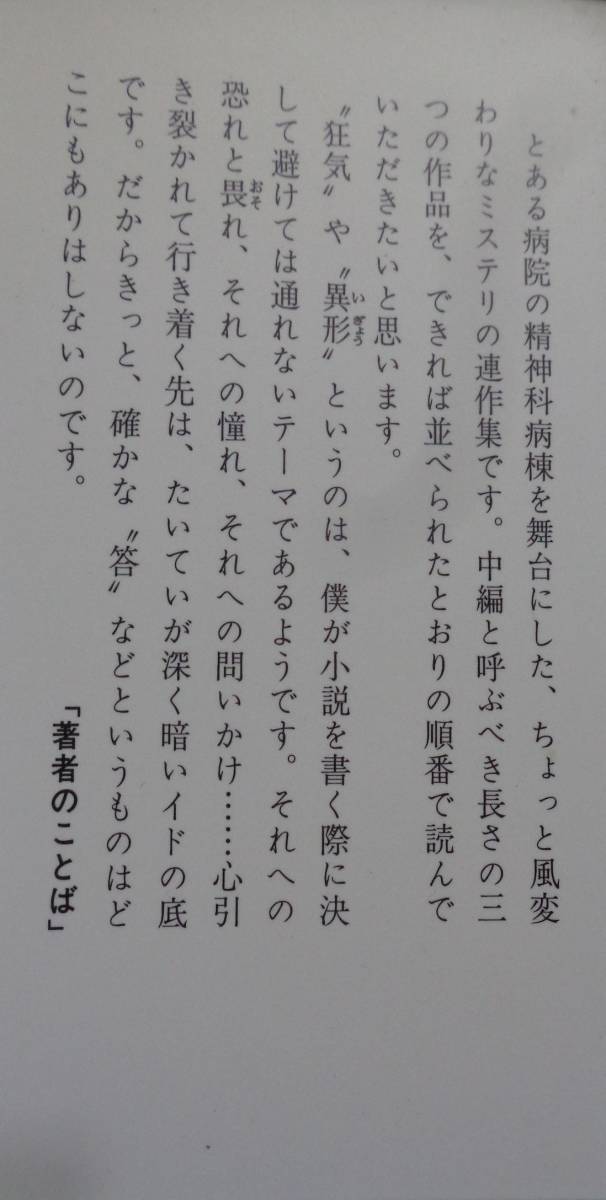 とある病院の精神科病棟を舞台にした、ちょっと風変
わりなミステリの連作集です。中編と呼ぶべき長さの三
つの作品を、できれば並べられたとおりの順番で読んで
いただきたいと思います。
〝狂気〟や〝異形〟というのは、僕が小説を書く際に決
して避けては通れないテーマであるようです。それへの
恐れと畏れ、それへの憧れ、それへの問いかけ……心引
き裂かれて行き着く先は、たいていが深く暗いイドの底
です。だからきっと、確かな〝答〟などというものはど
こにもありはしないのです。
「著者のことば」